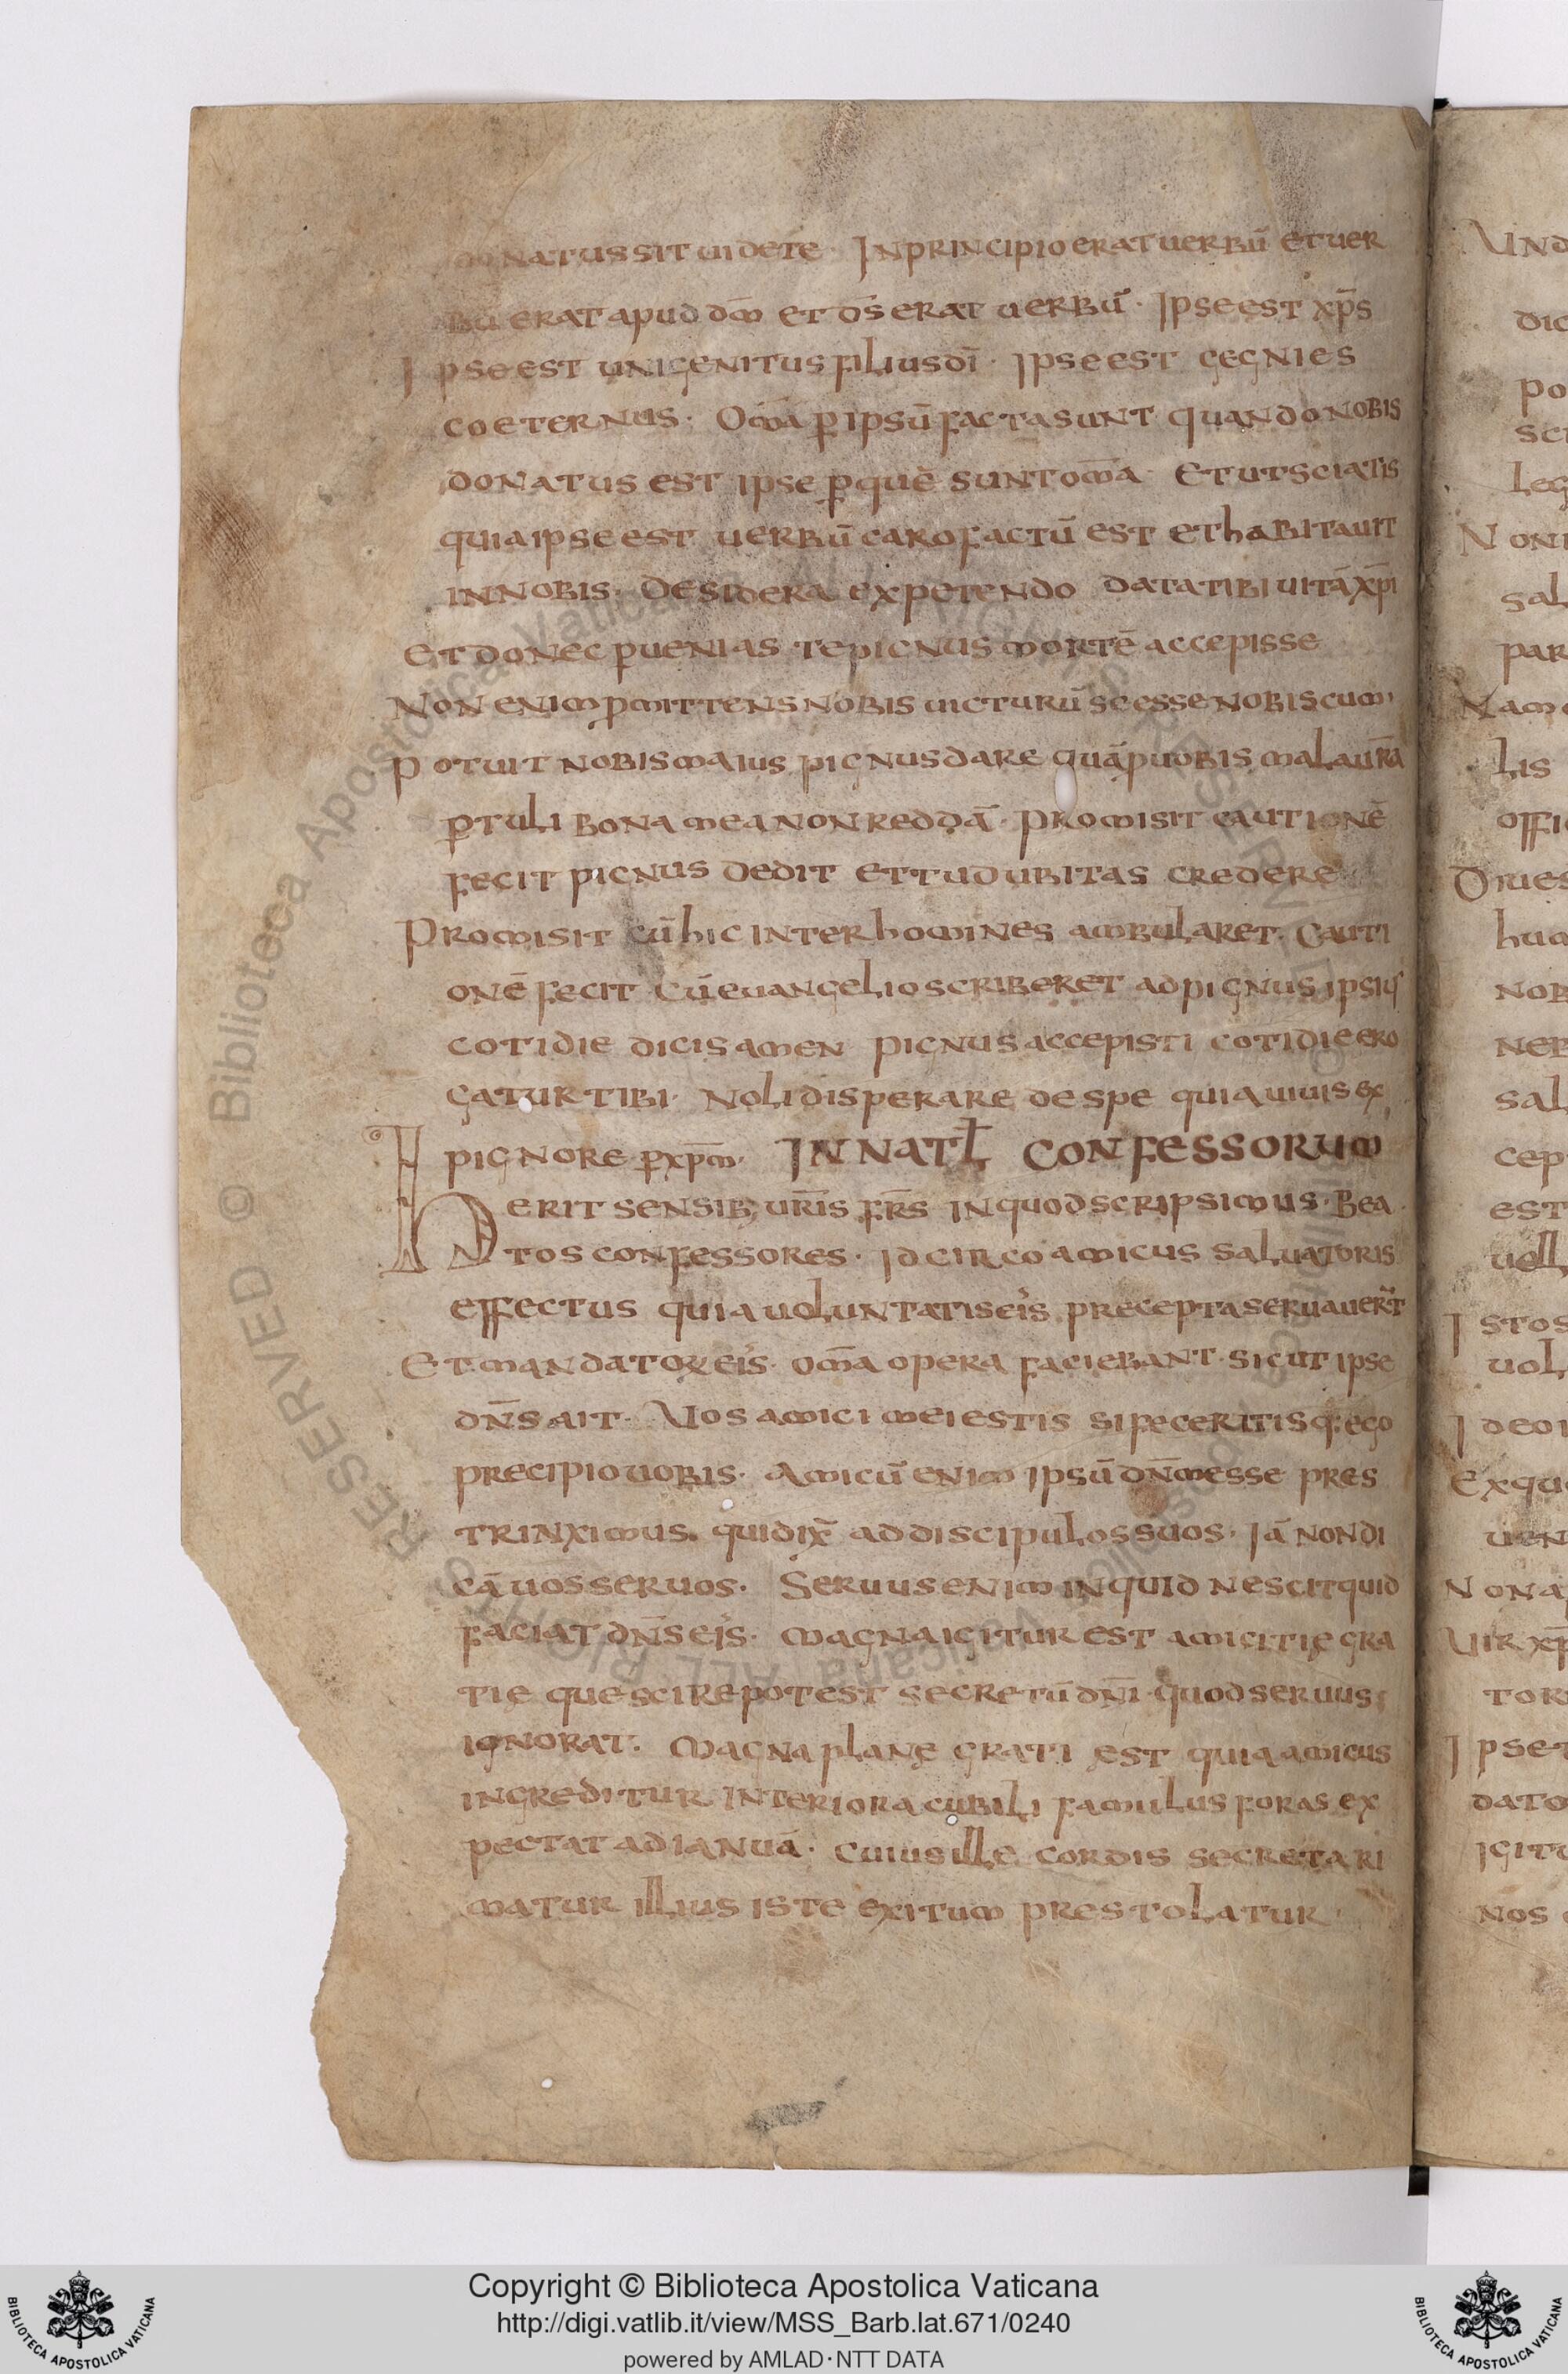 natus sit uidete · In principio erat uerbū et uer
bū erat apud dm̄ et ds̄ erat uerbū · Ipse est xp̄s
Ipse est unigenitus filius dī · Ipse est gegnies
coeternus · Om̄a p̱ ipsū facta sunt quando nobis
donatus est ipse p̱ quē sunt om̄a · Et ut sciatis
quia ipse est uerbū caro factū est et habitauit
in nobis · Desidera expetendo data tibi uitā xp̄i
Et donec p̱uenias te picnus mortē accepisse
Non enim p̱mittens nobis uicturū sc esse nobis cum ·
Potuit nobis maius pignus dare quā p̱ uobis mala ur̄a
p̱tuli bona mea non reddā · Promisit cautionē
fecit picnus dedit et tu dubitas credere
Promisit cū hic inter homines ambularet · Cauti
onē fecit cū euangelio scriberet ad pignus ipsius
cotidie dicis amen picnus accepisti cotidie ero
gatur tibi · Noli disperare de spe quia uiuis ex
pignore p̱ xp̄m · IN NATL̄ CONFESSORUM
Inerit sensib; ur̄is fr̄s inquod scripsimus · Bea
tos confessores · Idcirco amicus saluatoris
effectus quia uoluntatis eis precepta seruauer̄t
Et mandatoꝝ eis · om̄a opera faciebant · sicut ipse
dn̄s ait · Uos amici mei estis si feceritis q: ego
precipio uobis · Amicū enim ipsū dn̄m esse pres
trinximus · qui dix̄ ad discipulos suos · Iā non di
cā uos seruos · Seruus enim inquid nescit quid
faciat dn̄s eis · Magna igitur est amicitię gra
tię que scire potest secretū dn̄i · quod seruus
ignorat · Magna planę grati est quia amicus
ingreditur interiora cubili famulus foras ex
pectat ad ianuā · cuius ille cordis secreta ri
matur illius iste exitum prestolatur ·
Und
dic
po
scr
leg
Non
sal
par
Nam
lis
offi
Diues
hum
nob
ner
sal
cep
est
uell
Istos
uol
Ideo
Exqu
uen
Nona
Uir xp
tor
Ipse
dato
igit
nos
Copyright © Biblioteca Apostolica Vaticana
http://digi.vatlib.it/view/MSS_Barb.lat.671/0240
powered by AMLAD · NTT DATA
BIBLIOTECA APOSTOLICA VATICANA
BIBLIOTECA APOSTOLICA VATICANA